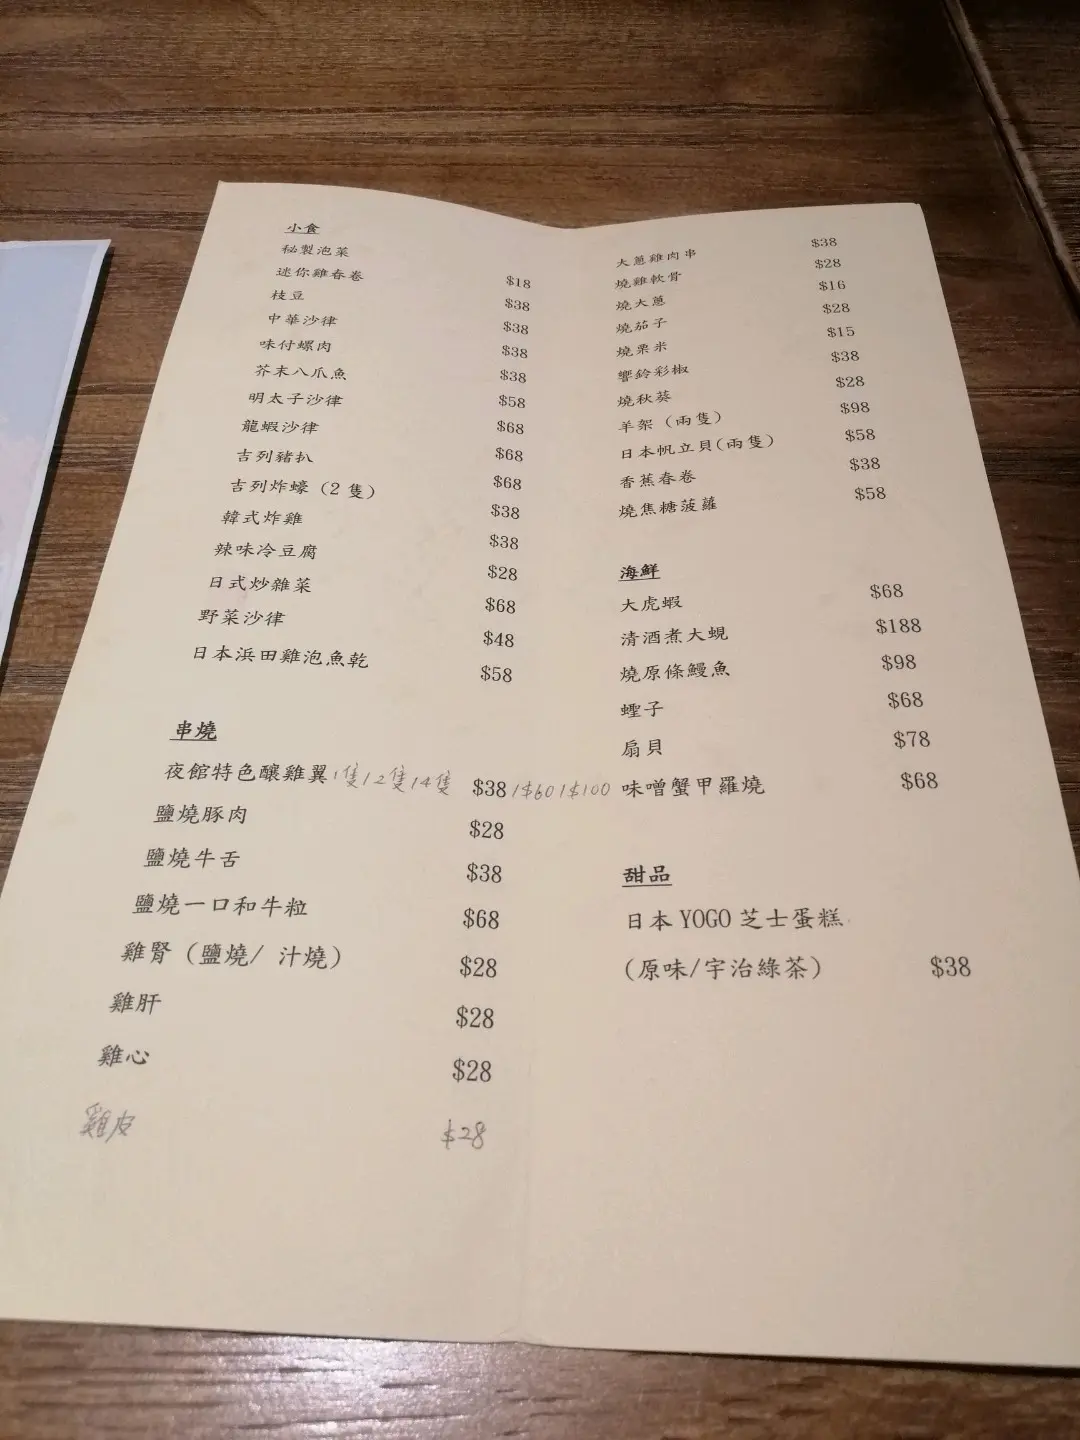 小食
秘製泡菜 $18
迷你雞春卷 $38
枝豆 $38
中華沙律 $38
味付螺肉 $38
芥末八爪魚 $58
明太子沙律 $68
龍蝦沙律 $68
吉列豬扒 $68
吉列炸蠔（2 隻） $38
韓式炸雞 $38
辣味冷豆腐 $28
日式炒雜菜 $68
野菜沙律 $48
日本浜田雞泡魚乾 $58
串燒
夜館特色釀雞翼 1隻/2隻/4隻 $38/$60/$100
鹽燒豚肉 $28
鹽燒牛舌 $38
鹽燒一口和牛粒 $68
雞腎（鹽燒/ 汁燒） $28
雞肝 $28
雞心 $28
雞皮 $28
大蔥雞肉串 $38
燒雞軟骨 $28
燒大蔥 $16
燒茄子 $28
燒粟米 $15
響鈴彩椒 $38
燒秋葵 $28
羊架（兩隻） $98
日本帆立貝(兩隻） $58
香蕉春卷 $38
燒焦糖菠蘿 $58
海鮮
大虎蝦 $68
清酒煮大蜆 $188
燒原條鰻魚 $98
蟶子 $68
扇貝 $78
味噌蟹甲羅燒 $68
甜品
日本 YOGO 芝士蛋糕
(原味/宇治綠茶） $38